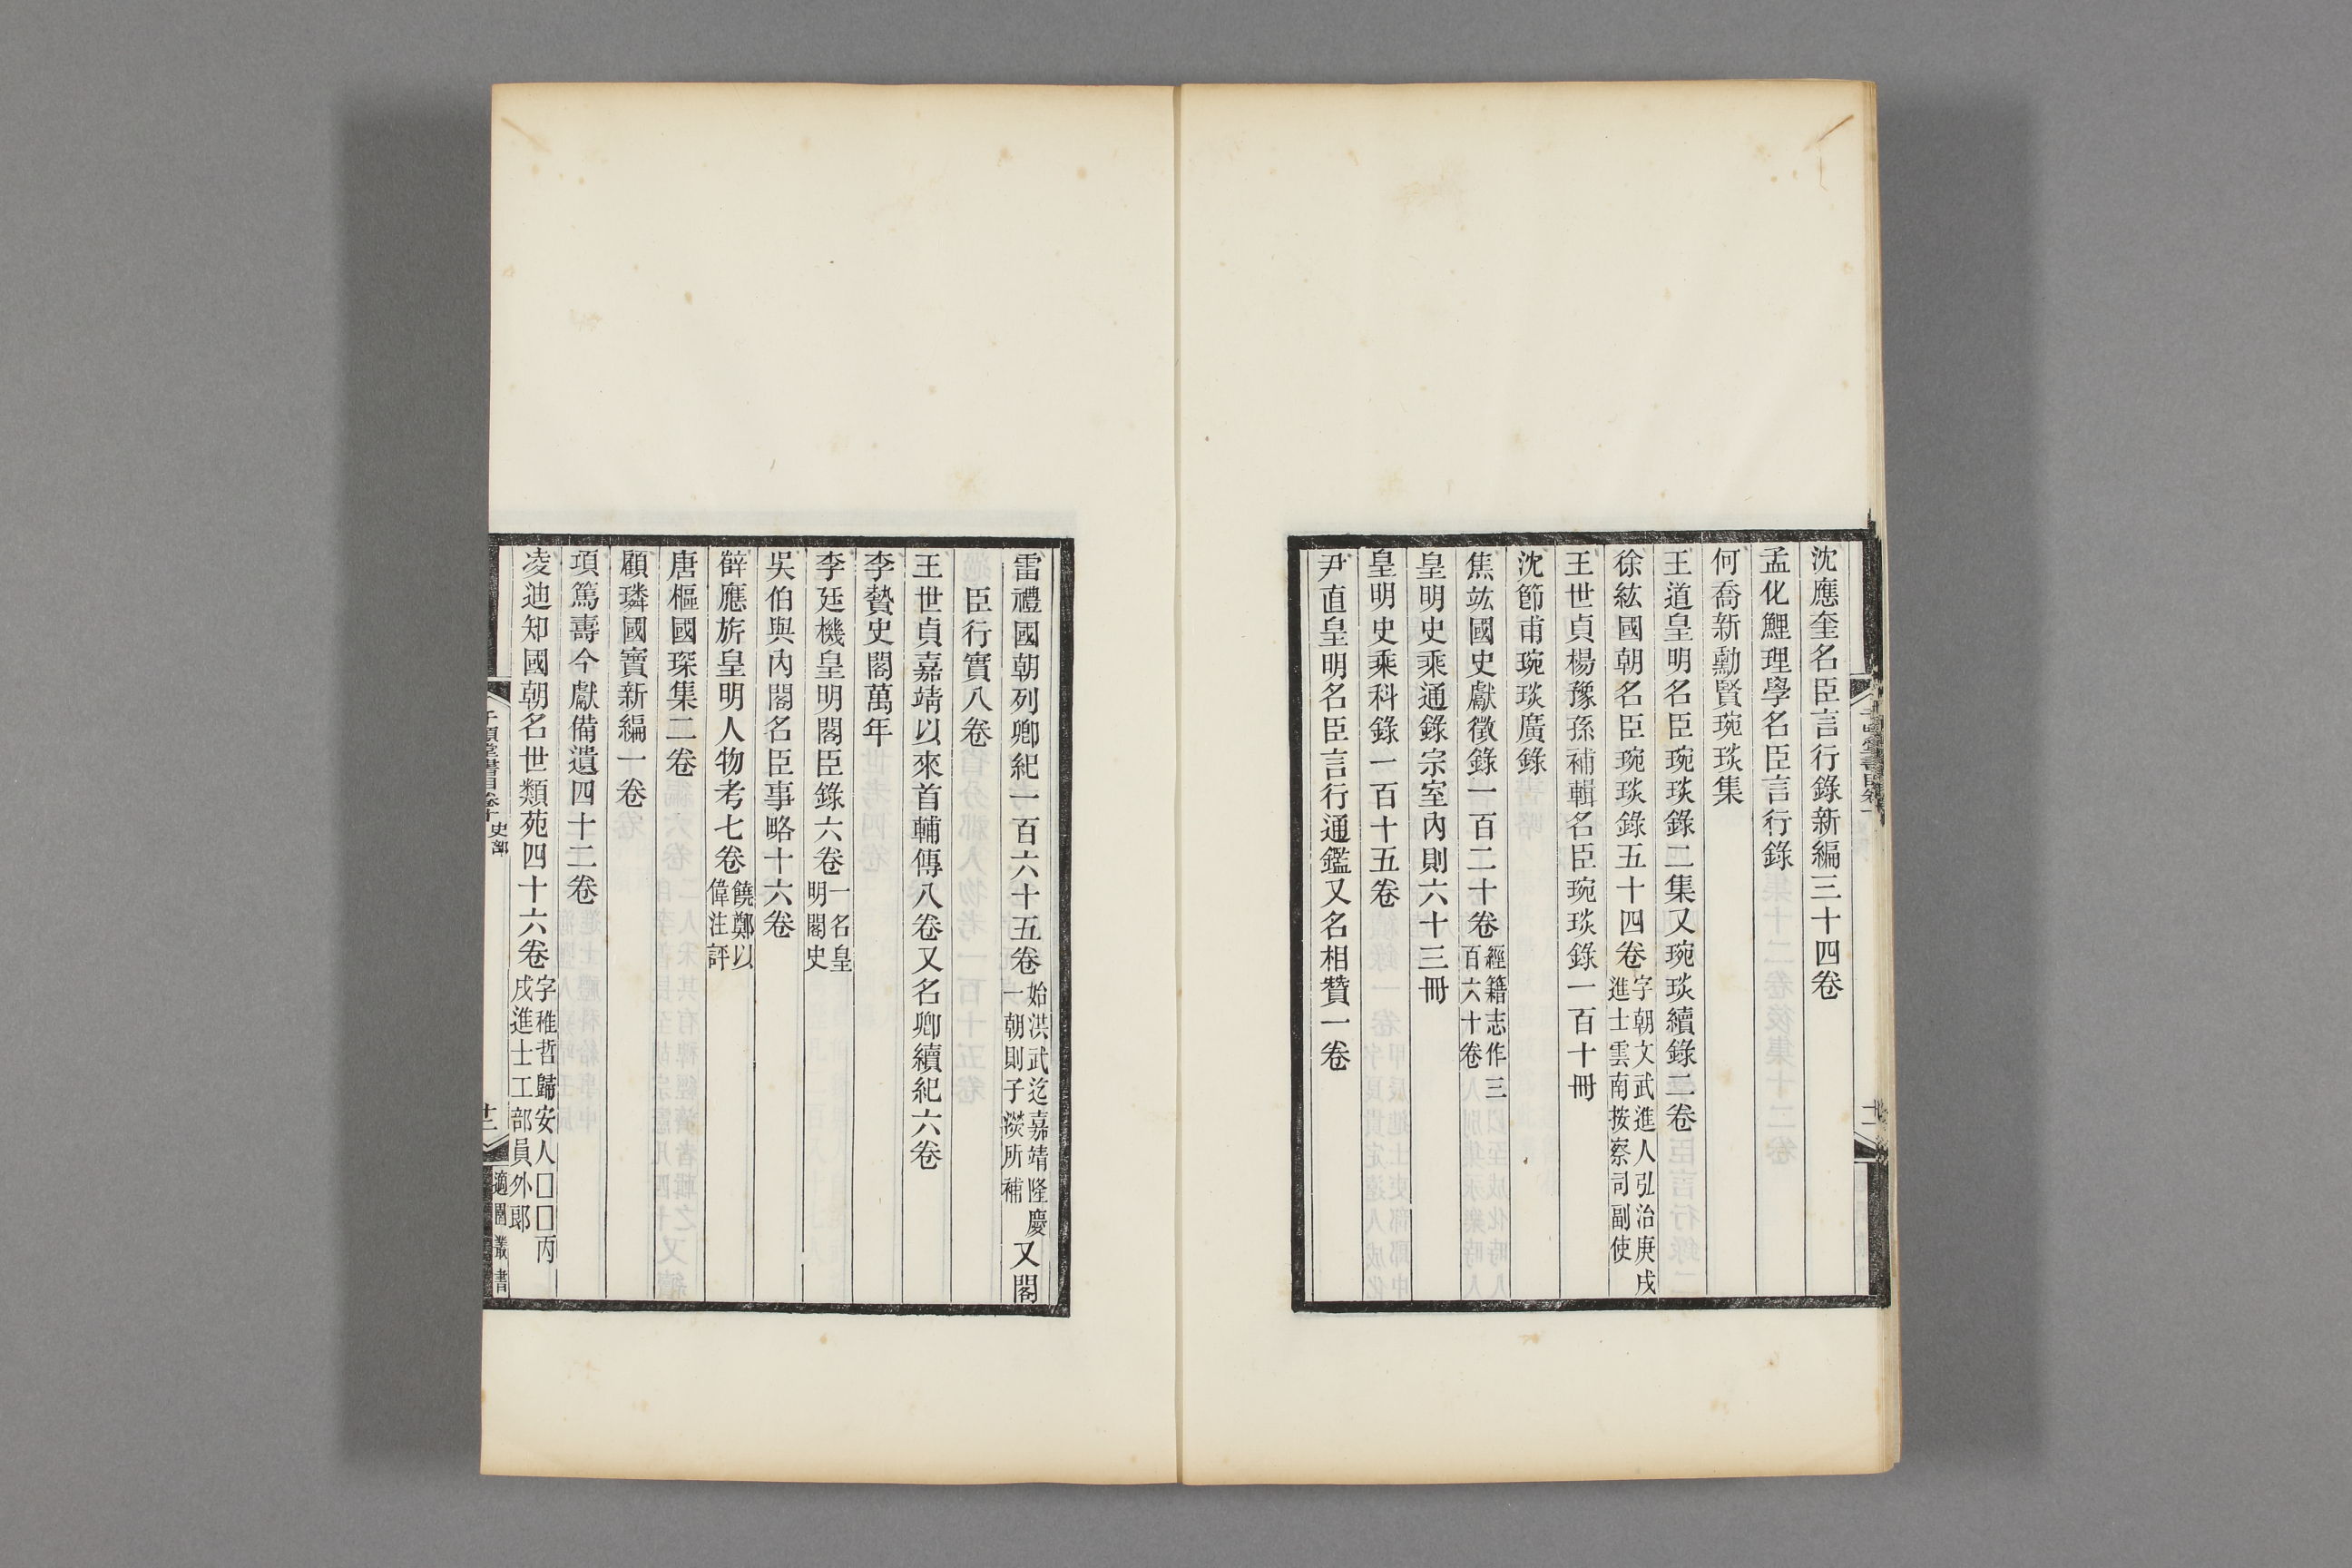 沈應奎名臣言行錄新編三十四卷
孟化鯉理學名臣言行錄
何喬新勳賢琬琰集
王道皇明名臣琬琰錄二集又琬琰續錄二卷
徐紘國朝名臣琬琰錄五十四卷字朝文武進人弘治庚戌進士雲南按察司副使
王世貞楊豫孫補輯名臣琬琰錄一百十冊
沈節甫琬琰廣錄
焦竑國史獻徵錄一百二十卷經籍志作三百六十卷
皇明史乘通錄宗室內則六十三冊
皇明史乘科錄一百十五卷
尹直皇明名臣言行通鑑又名相贊一卷
雷禮國朝列卿紀一百六十五卷始洪武迄嘉靖隆慶一朝則子漦所補又閣
臣行實八卷
王世貞嘉靖以來首輔傳八卷又名卿續紀六卷
李贄史閣萬年
李廷機皇明閣臣錄六卷一名皇明閣史
吳伯與內閣名臣事略十六卷
薛應旂皇明人物考七卷饒鄭以偉注評
唐樞國琛集二卷
顧璘國寶新編一卷
項篤壽今獻備遺四十二卷
凌迪知國朝名世類苑四十六卷字稚哲歸安人□□丙戌進士工部員外郎
千頃堂書目卷十 史部
十二
適園叢書